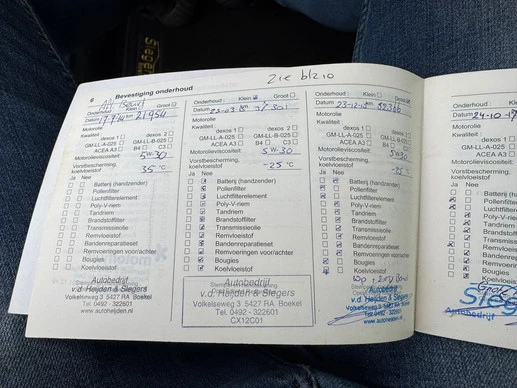 Zie blz 10
6 Bevestiging onderhoud
Onderhoud: Klein Groot
Datum 17 9 14 km 21954
Motorolie
Kwaliteit:
dexos 1 dexos 2
GM-LL-A-025 GM-LL-B-025
ACEA A3 B4 C3
Motorolieviscositeit: 5W-30
Vorstbescherming,
koelvloeistof -35 °C
Ja Nee
Batterij (handzender)
Pollenfilter
Luchtfilterelement
Poly-V-riem
Tandriem
Brandstoffilter
Transmissieolie
Remvloeistof
Bandenreparatieset
Remvoeringen voor/achter
Bougies
Koelvloeistof
Autobedrijf
v.d. Heijden & Slegers
Volkelseweg 3 5427 RA Boekel
Tel. 0492 - 322601
www.autoheijden.nl
Onderhoud: Klein Groot
Datum
Motorolie
Kwaliteit:
dexos 1 dexos 2
GM-LL-A-025 GM-LL-B-025
ACEA A3 B4 C3
Motorolieviscositeit: 5W-30
Vorstbescherming,
koelvloeistof -25 °C
Ja Nee
Batterij (handzender)
Pollenfilter
Luchtfilterelement
Poly-V-riem
Tandriem
Brandstoffilter
Transmissieolie
Remvloeistof
Bandenreparatieset
Remvoeringen voor/achter
Bougies
Koelvloeistof
Autobedrijf
v.d. Heijden & Slegers
Volkelseweg 3 5427 RA Boekel
Tel. 0492 - 322601
CX12C01
Onderhoud: Klein Groot
Datum 23-12-15 km 39366
Motorolie
Kwaliteit:
dexos 1 dexos 2
GM-LL-A-025 GM-LL-B-025
ACEA A3 B4 C3
Motorolieviscositeit: 5W30
Vorstbescherming,
koelvloeistof °C
Ja Nee
Batterij (handzender)
Pollenfilter
Luchtfilterelement
Poly-V-riem
Tandriem
Brandstoffilter
Transmissieolie
Remvloeistof
Bandenreparatieset
Remvoeringen voor/achter
Bougies
Koelvloeistof
Autobedrijf
v.d. Heijden & Slegers
Volkelseweg 3 5427 RA Boekel
Tel. 0492 - 322601
www.autoheijden.nl
Onderhoud:
Datum 24-10-17
Motorolie
Kwaliteit:
GM-LL-A-025
ACEA A3
Motorolieviscositeit:
Vorstbescherming,
koelvloeistof
Ja Nee
Batterij
Pollenfilter
Luchtfilterelement
Poly-V-riem
Tandriem
Brandstoffilter
Transmissieolie
Remvloeistof
Bandenreparatieset
Remvoeringen
Bougies
Koelvloeistof
Autobedrijf